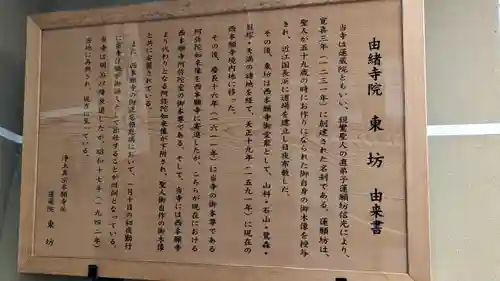 由緒寺院 東坊 由来書
当寺は蓮蔵院ともいい、親鸞聖人の直弟子蓮願坊信光により、
寛喜三年(一二三一年)に創建された名刹である。蓮願坊は、
聖人が五十九歳の時にお作りになられた御自身の御木像を授与
され、近江国長浜に道場を建立し日夜布教した。
その後、東坊は西本願寺御堂衆として、山科・石山・鷺森・
貝塚・天満の諸地を経て、天正十九年(一五九一年)に現在の
西本願寺境内地に移った。
その後、慶長十六年(一六一一年)に当寺の御本尊である
阿弥陀如来像を西本願寺に寄進したが、こちらが現在における
西本願寺阿弥陀堂の御本尊である。そして、当寺には西本願寺
より代わりとなる阿弥陀如来像が下附され、聖人御自作の御木像
と共に安置されている。
また、西本願寺の御正忌報恩講において、一月十日の初夜勤行
に当寺は として出仕することが慣例となっている。
当寺は明治の 焼失したが、昭和十七年(一九四二年)
当地に再興され、現在に至っている。
浄土真宗本願寺派
蓮蔵院 東坊